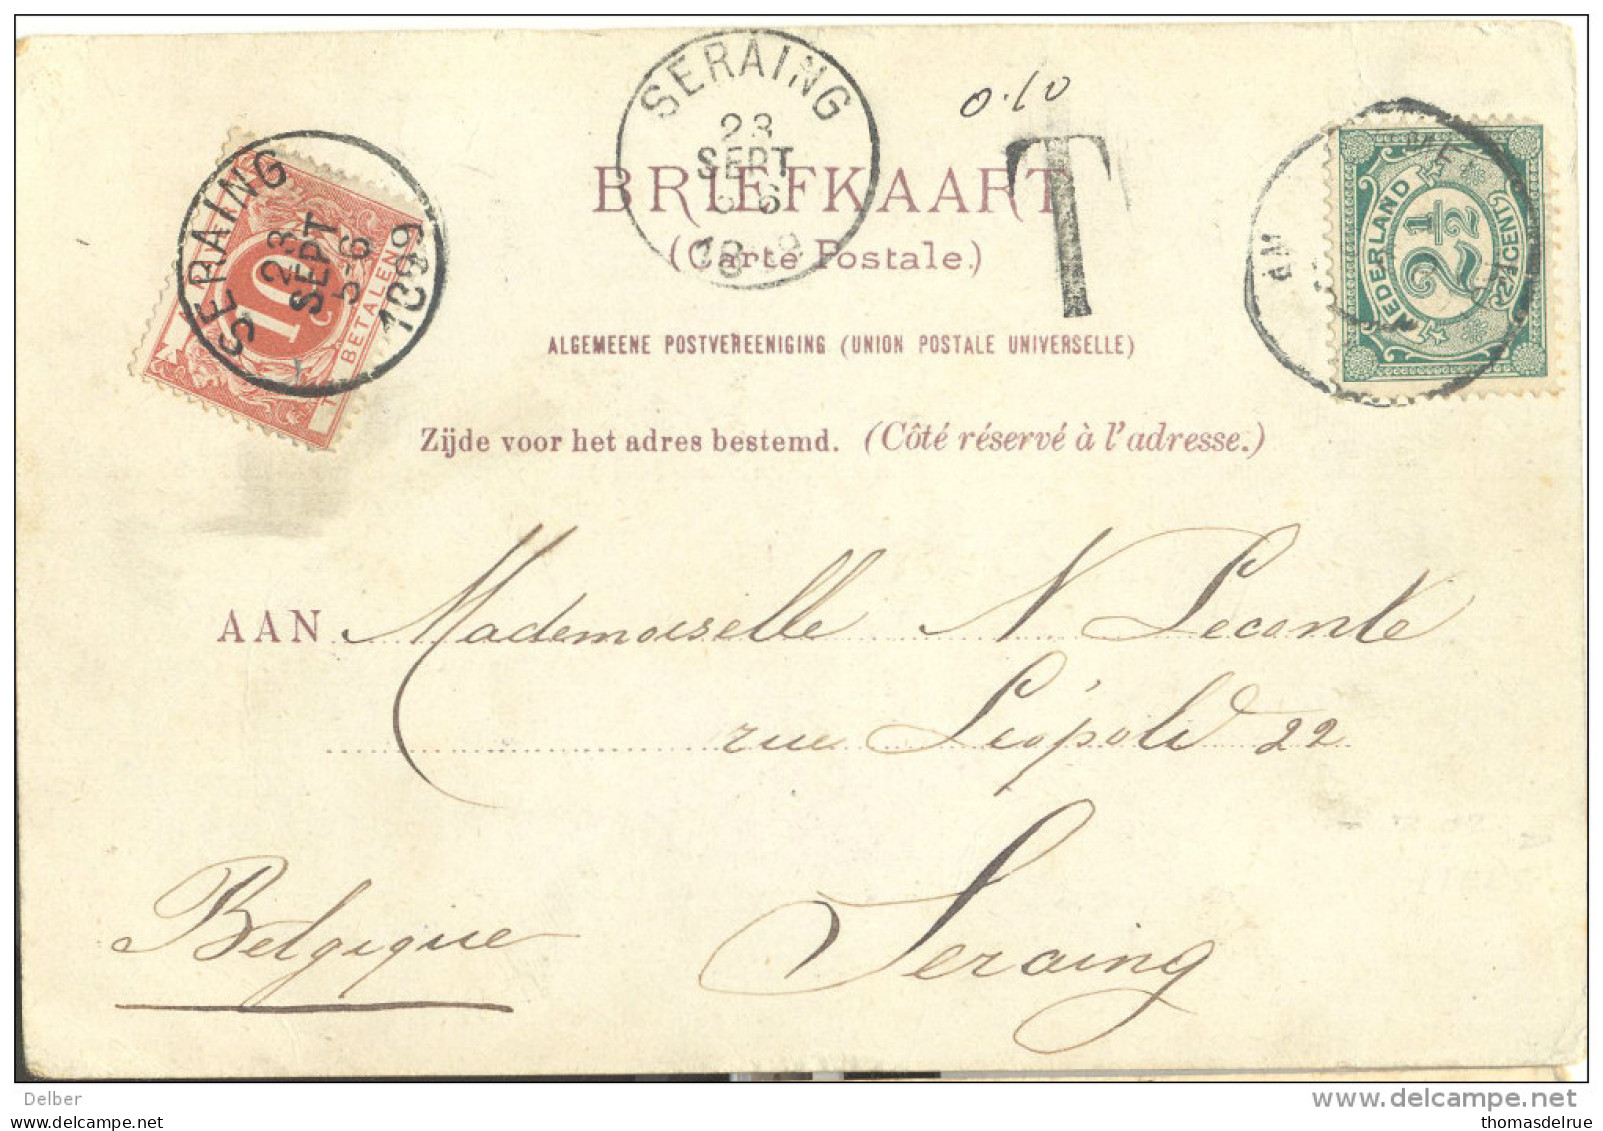 SERAING
23
SEPT
5-6
1899
0.10
T
SERAING
23
SEPT
5-6
1899
10 c
TE BETALEN
NEDERLAND
2½
(2½CENT)
BRIEFKAART
(Carte Postale.)
ALGEMEENE POSTVEREENIGING (UNION POSTALE UNIVERSELLE)
Zijde voor het adres bestemd. (Côté réservé à l'adresse.)
AAN Mademoiselle N Lecomte
rue Léopold 22
Seraing
Belgique
Delber
www.delcampe.net
thomasdelrue